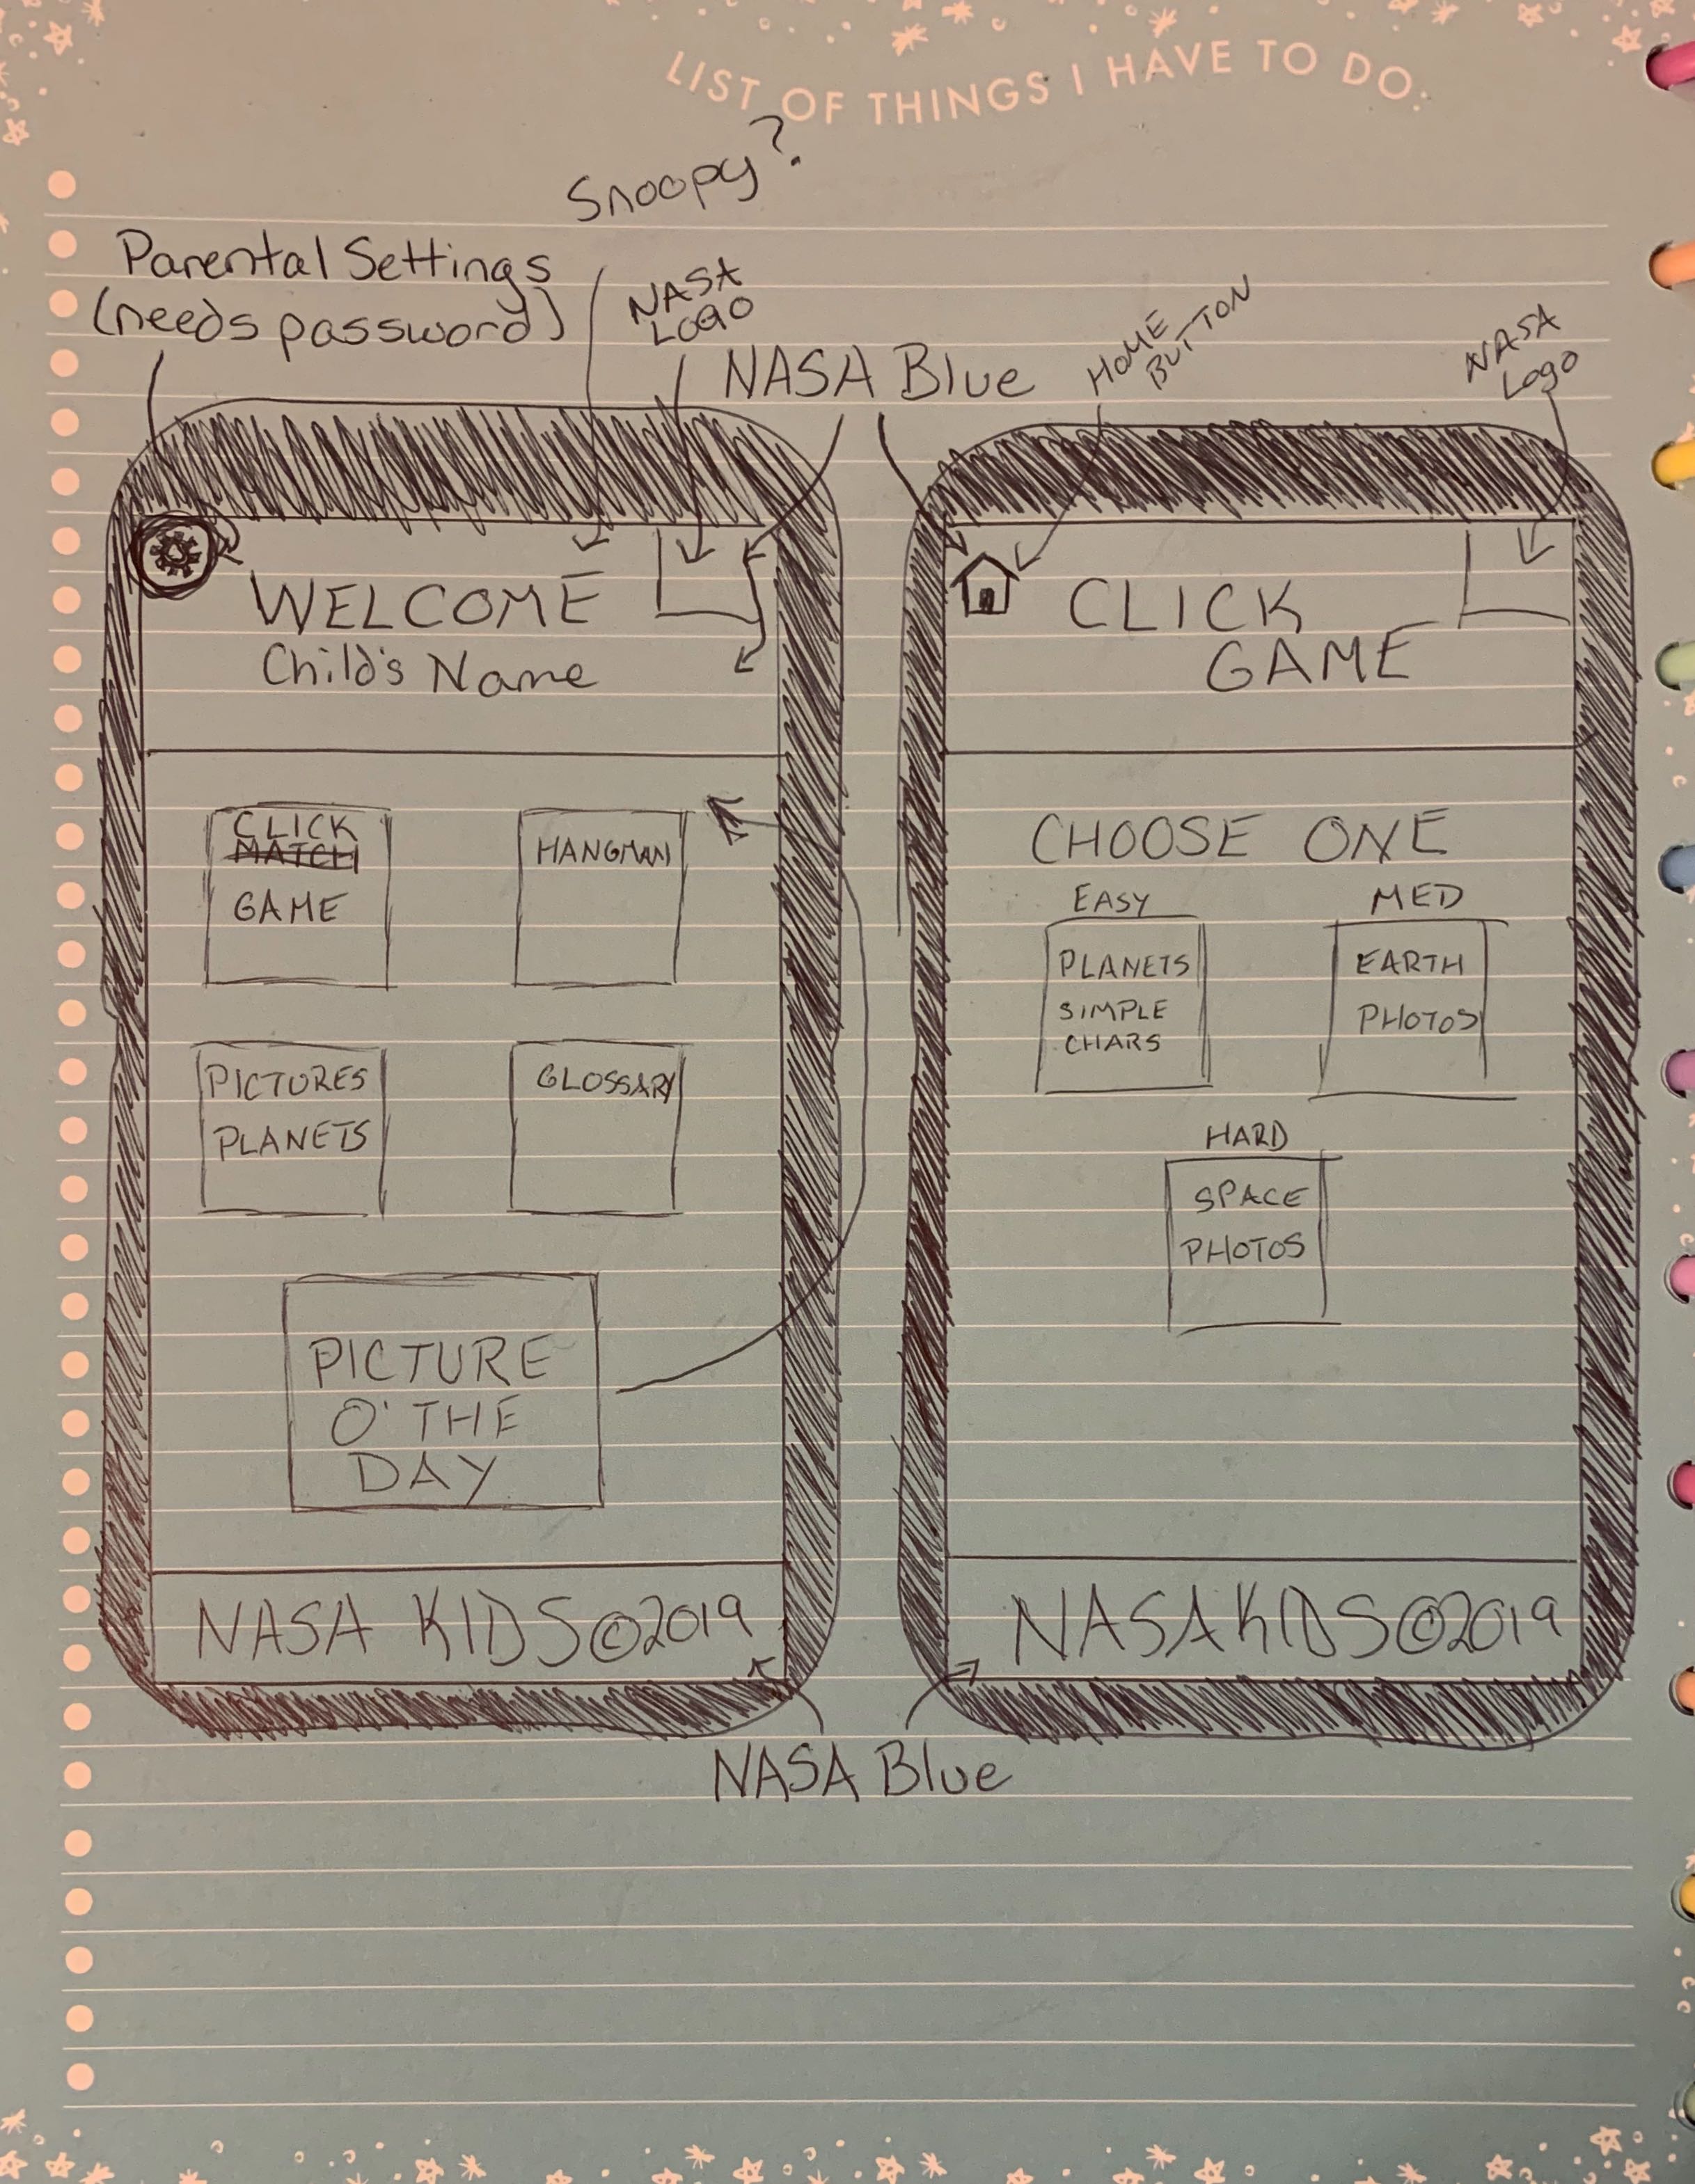 LIST OF THINGS I HAVE TO DO.
Snoopy?
Parental Settings
(needs password)
NASA
LOGO
NASA Blue
HOME
BUTTON
NASA
Logo
WELCOME
Child's Name
CLICK
MATCH
GAME
HANGMAN
PICTURES
PLANETS
GLOSSARY
PICTURE
O' THE
DAY
NASA KIDS©2019
CLICK
GAME
CHOOSE ONE
EASY
PLANETS
SIMPLE
CHARS
MED
EARTH
PHOTOS
HARD
SPACE
PHOTOS
NASA KIDS©2019
NASA Blue